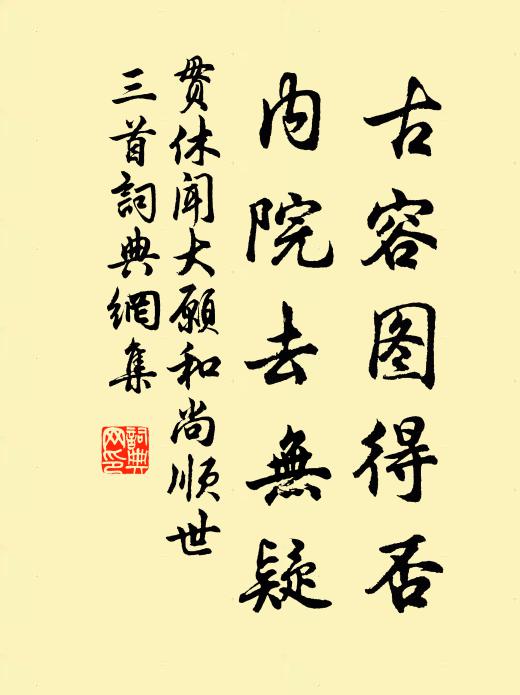 古容图得否
内院去無疑
贯休闻大愿和尚顺世
三首詞典網集
詞典
网印